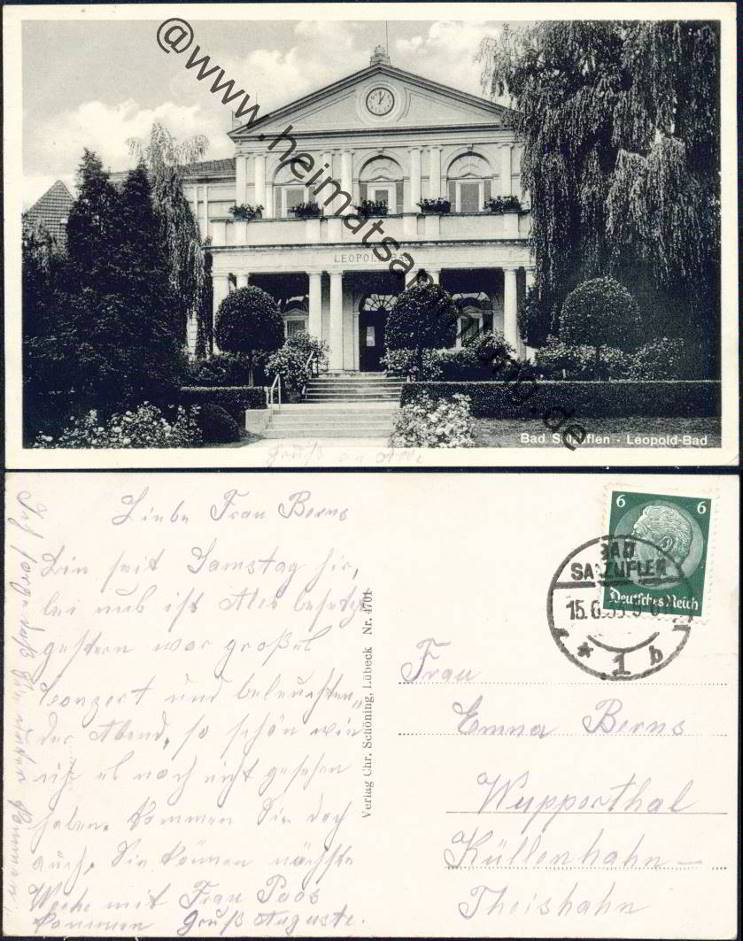 @www.heimatsammlung.de
LEOPOLD-BAD
Bad Salzuflen - Leopold-Bad
Gruß an
Liebe Frau Berns
Bin seit Samstag hier,
bei uns ist Ales besetzt
gestern war großes
Conzert und beleuchten„
der Abend, so schön wie
ich es noch nicht gesehen
haben. Kommen Sie doch
auch, Sie können nächste
Woche mit Frau Paas
kommen Gruß Auguste.
Verlag Chr. Schöning, Lübeck Nr. 4701
6 6
Deutsches Reich
BAD
SALZUFLEN
15.6.
* 1 b
Frau
Emma Berns
Wupperthal
Küllenhahn –
Theishahn